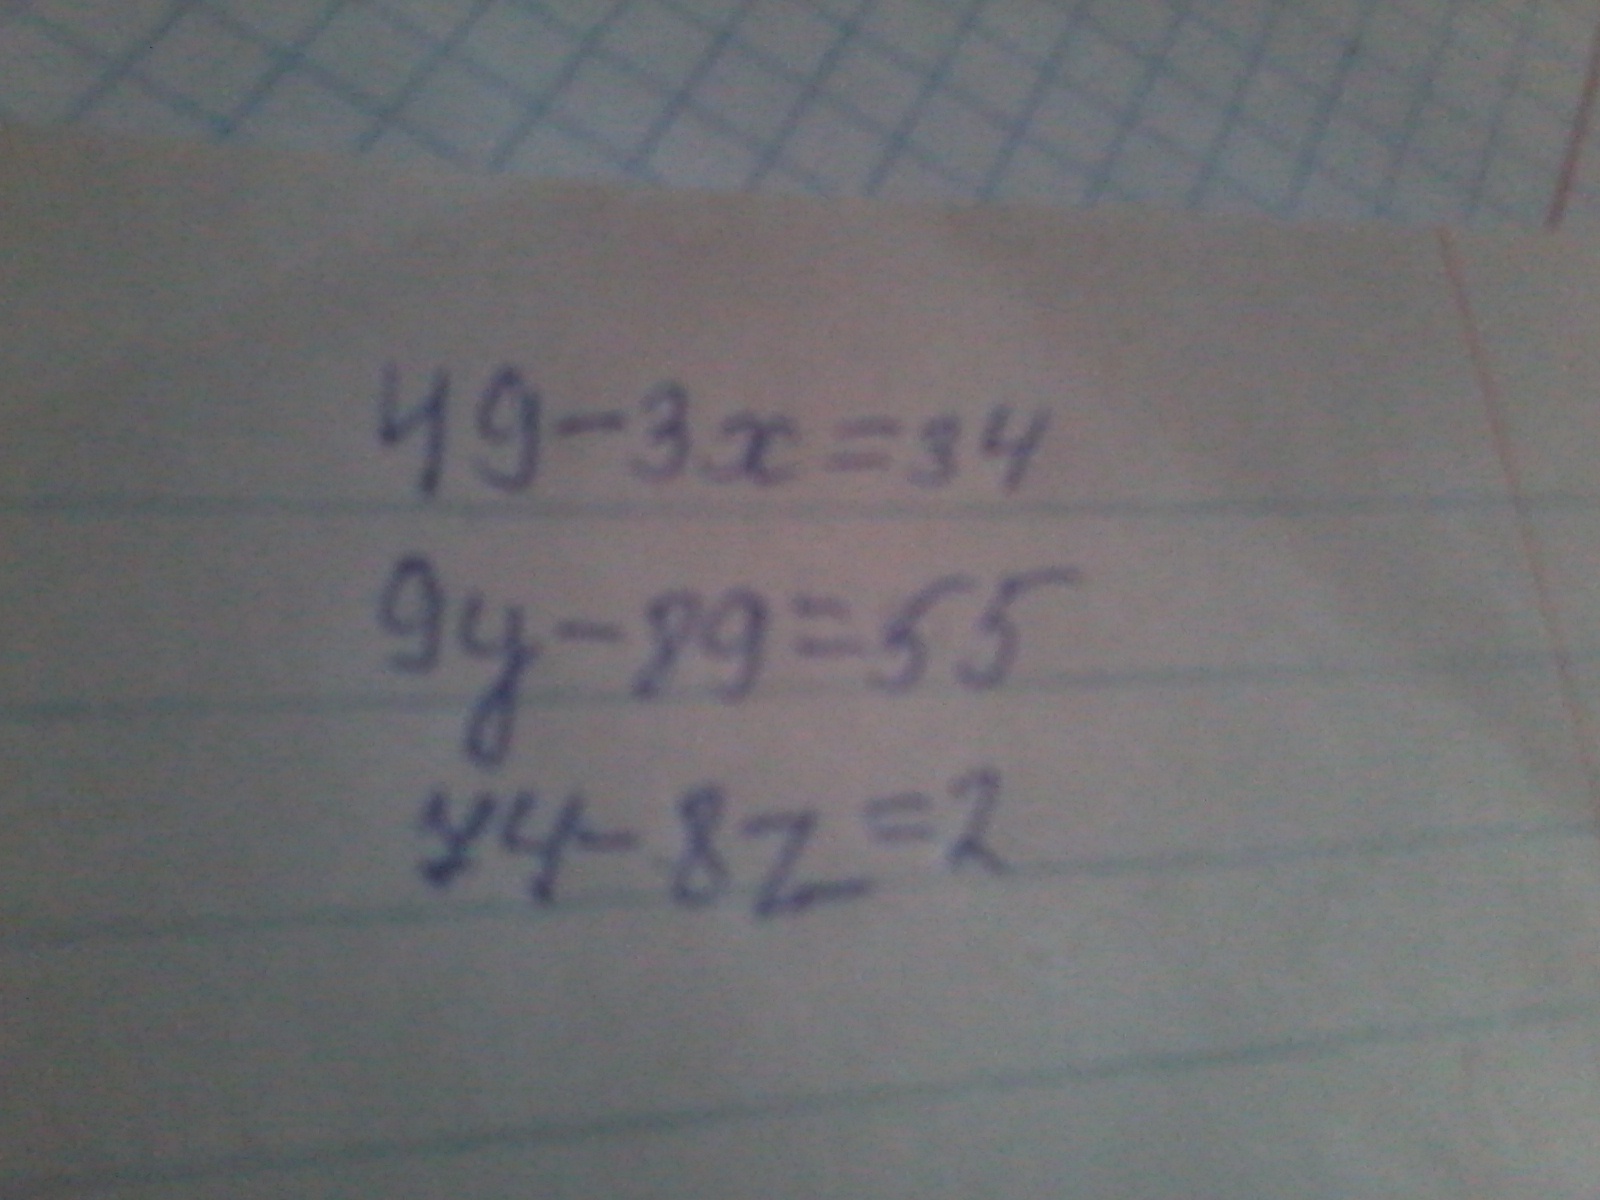 49-3x=34
9y-89=55
74-8z=2